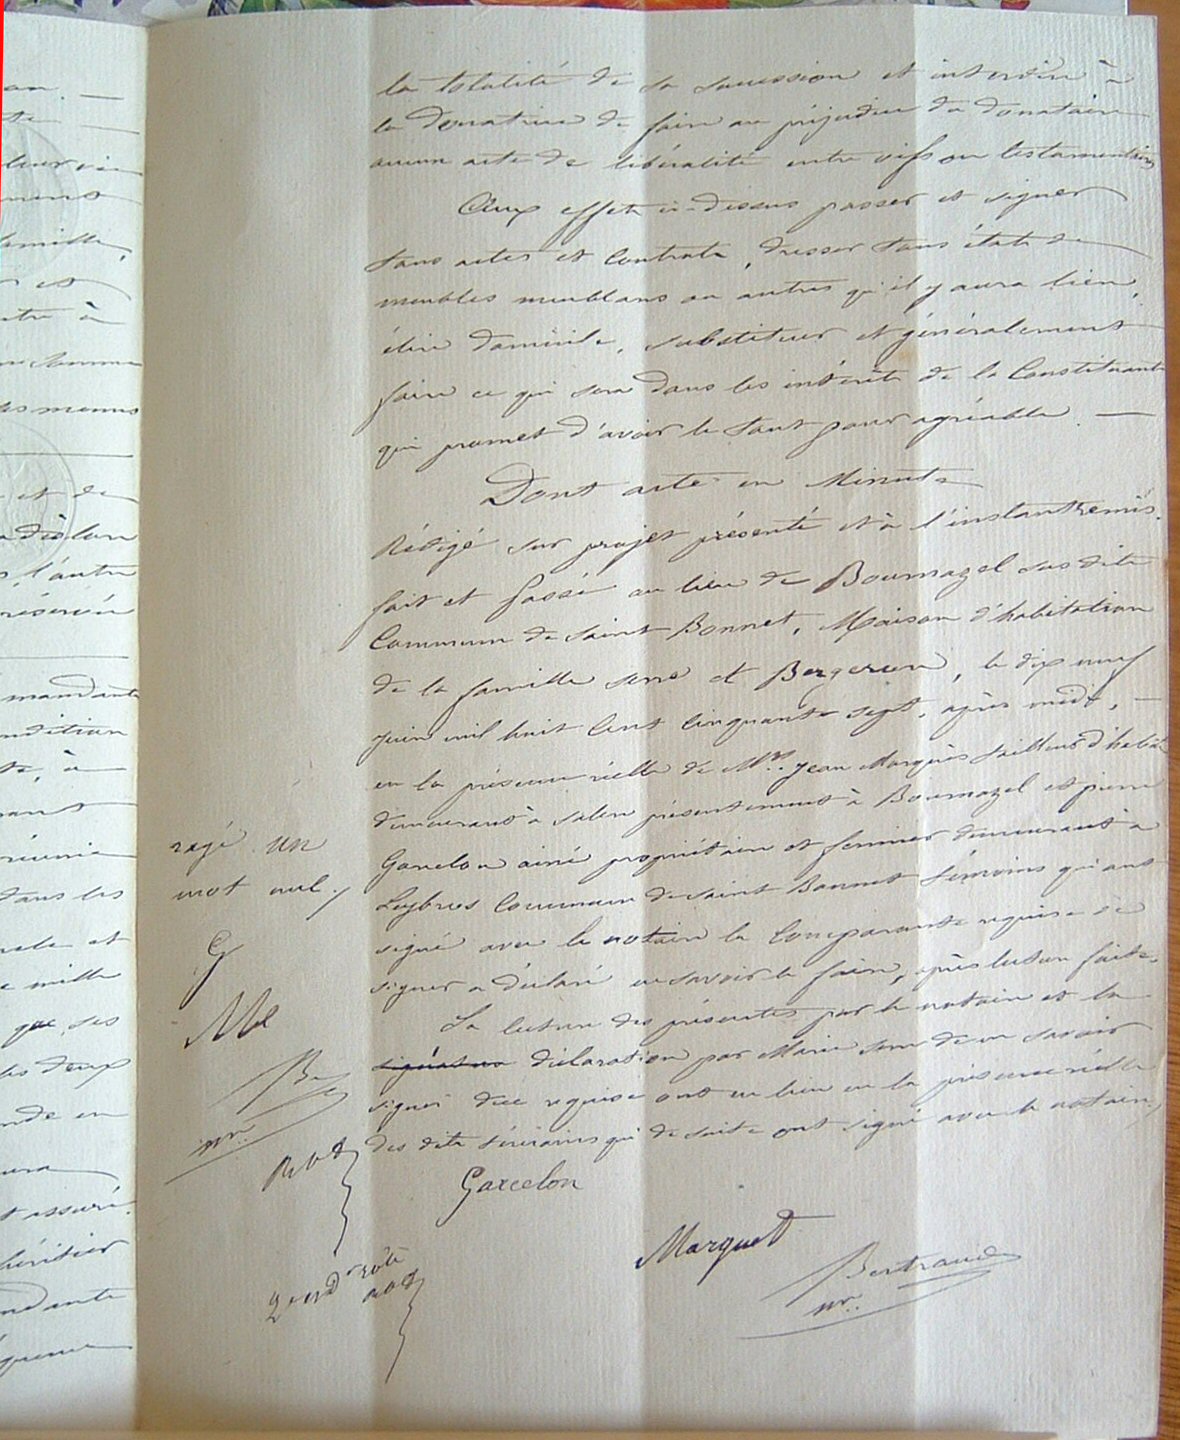 la totalité de sa succession et interdire à
la donatrice de faire au préjudice du donataire
aucun acte de libéralité entre vifs ou testamentaire
Aux effets ci-dessus passer et signer
tous actes et contrats, dresser tous états de
meubles meublans ou autres qu'il y aura lieu,
élire domicile, substituer et généralement
faire ce qui sera dans les intérêts de la Constituante
qui promet d'avoir le tout pour agréable
Dont acte en Minute
Rédigé sur projet présenté et à l'instant remis.
fait et passé au lieu de Bournazel susdite
Commune de Saint Bonnet, Maison d'habitation
de la famille serre et Bergeron, le dix neuf
juin mil huit cent cinquante sept, après midi,
en la présence réelle de Mrs Jean Marquès tailleur d'habits
demeurant à Salers présentement à Bournazel et pierre
Garcelon ainé propriétaire et fermier demeurant à
Leybros Commune de Saint Bonnet témoins qui ont
signé avec le notaire la Comparante requise de
signer a déclaré ne savoir le faire, après lecture faite.
La lecture des présentes par le notaire et la
signature déclaration par Marie serre de ne savoir
signer dûe requise ont eu lieu en la présence réelle
des dits témoins qui de suite ont signé avec le notaire
Garcelon
Marquet
Bertrand
nre.
rayé un
mot nul.
G
Me
Be
nre
an.
te
leur vie
famille,
et
tre à
somme
les menus
et de
l'autre
réservée
mandante
ndition
te, à
réunie
dans les
et
mille
que ses
les deux
nde en
t assuré.
héritier
ndante